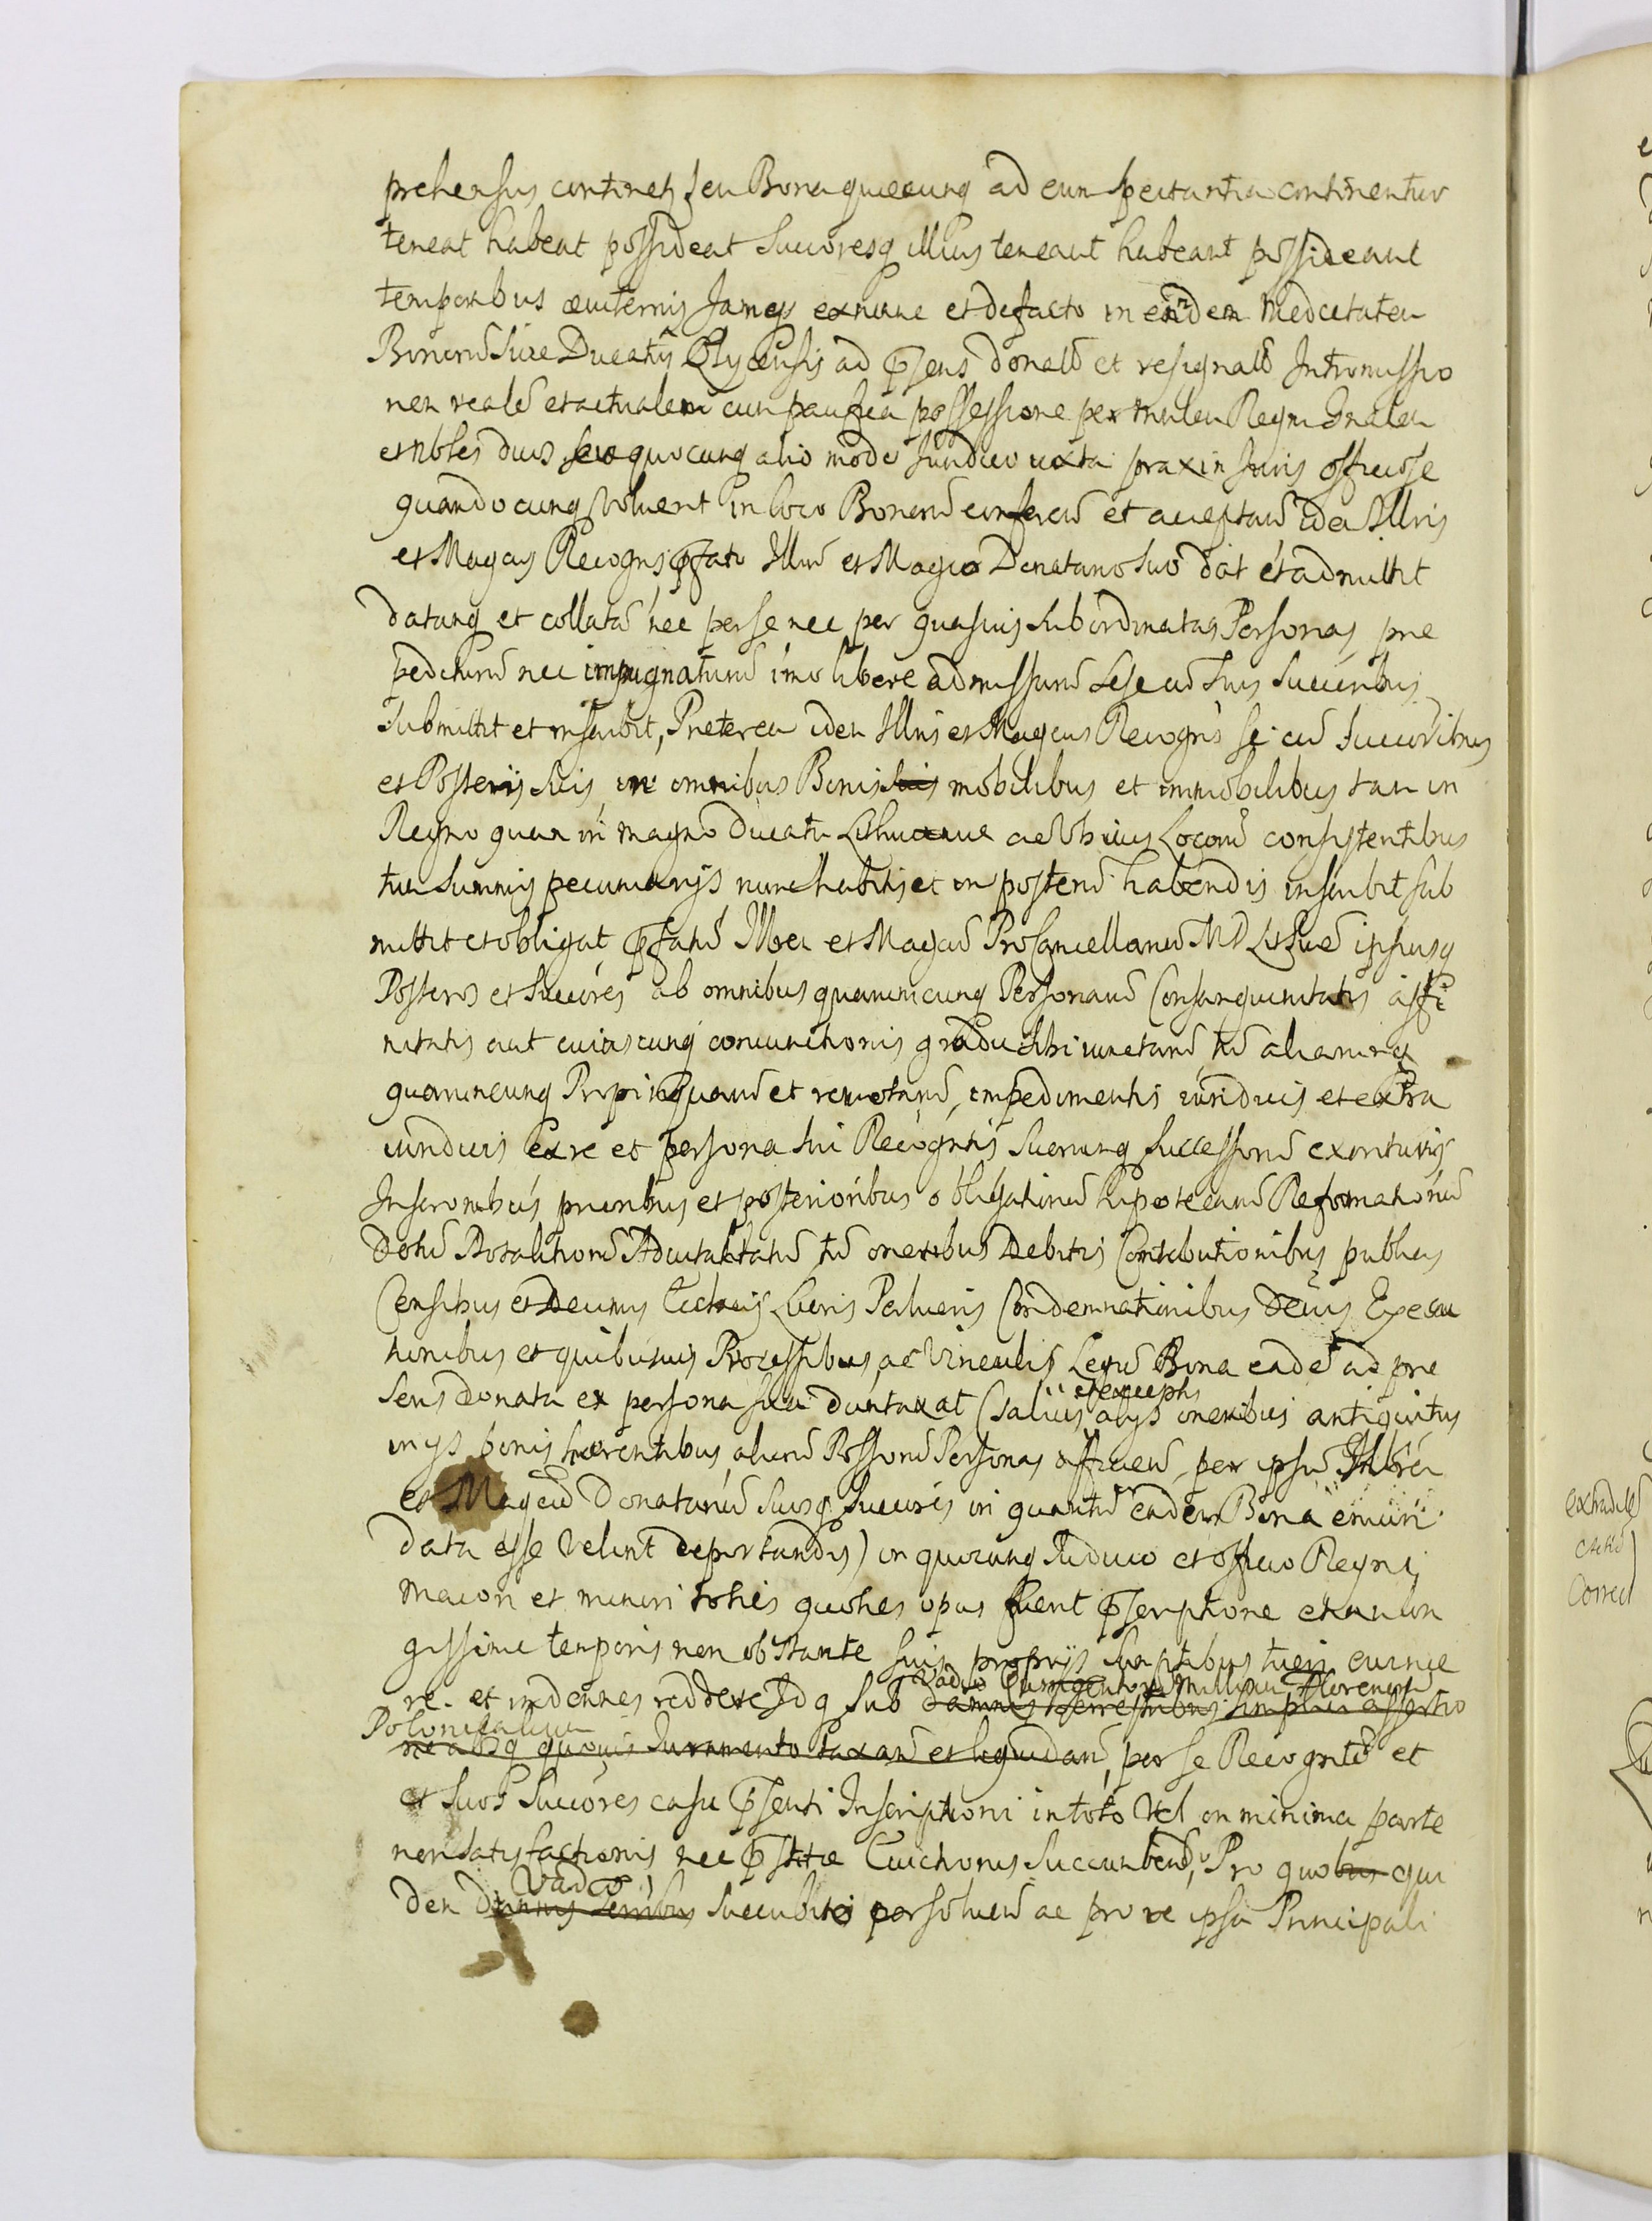 prehensus continet, seu Bona quæcunq ad eum spectantia continentur
teneat habeat possideat Succoresq illius teneant habeant possideant
temporibus æuiternis Jamqz exnunc et defacto in eandem Medietatem
Bonorũ siue Ducatus Olycensis ad p̃sens donatã et resignatã Intromissio
nem realẽ et actualem cum pacifica possessione per Mnlem Regni Gnalem
et Nbles duos seu quocunq alio modo Juridico iuxta praxim Juris officiose
quandocunq voluerit in loco Bonorũ conferen̄ et acceptan̄ idem Illris
et Magcus Recogns p̃fato Illri et Magco Donatario suo dat et admittit
datamq et collatã nec per se nec per quasuis subordinatas Personas præ
pediturũ nec impugnaturũ imo libere admissurũ Sese cũ suis Succoribus
Submittit et inscribit, Præterea idem Illris et Magcus Recogns se cũ Succoribus
et Posteris suis in omnibus Bonis suis mobilibus et immobilibus tam in
Regno quam in Magno Ducatu Lithuaniæ ac Vbiuis Locorũ consistentibus
tum Summis pecuniarijs nunc habitis et in posterũ habendis inscribit sub
mittit et obligat p̃fatũ Illrem et Magcũ Procancellariũ MD Lithuæ ipsiusq
Posteros et Succores ab omnibus quarumcunq Personarũ Consanguinitatis affi
nitatis aut cuiuscunq coniunctionis gradu sibi iunctarũ tũ aliarumq
quarumcunq Propinquarũ et remotarũ, impedimentis iuridicis et extra
iuridicis ex re et persona sui Recogntis Suorumq Successorũ exorituris
Inscronibus prioribus et posterioribus obligationũ hipotecarũ Reformationũ
Dotũ Dotalitiorũ Aduitalitatũ tũ oneribus Debitis Contributionibus publicis
Censibus et Decimis Euictionis Lucris Perlucris Condemnationibus Decis Execu
tionibus et quibusuis Processibus, ac Vinculis Legũ Bona eadẽ ad præ
sens donata ex persona sua duntaxat (saluis et exceptis alijs oneribus antiquitus
in ijs bonis hærentibus aliorũ Possorũ Personas afficien̄ per ipsũ Illrem
et Magcũ Donatariũ Suosq Succores in quantũ eadem Bona
data esse velint deportandis) in quocunq Judicio et officio Regni
maiori et minori toties quoties opus fuerit p̃scriptione etiam lon
gissimi temporis non obstante suis proprijs sumptibus tueri euince
re et indemnes reddere Idq Sub damnis terrestribus simplici assertio
Vadio Millium Florenorũ
Polonicaliũ
ne absq quouis Juramento taxan̄ et liquidan̄, per se Recogntẽ et
et suos Succores casu p̃senti Inscriptioni in toto vel in minima parte
non satisfactionis nec p̃stitæ Euictionis Succumbend, Pro quobus qui
dem damnis terribus Vadio Succubito persoluen̄ ac pro re ipsa Principali
extradit
Correct